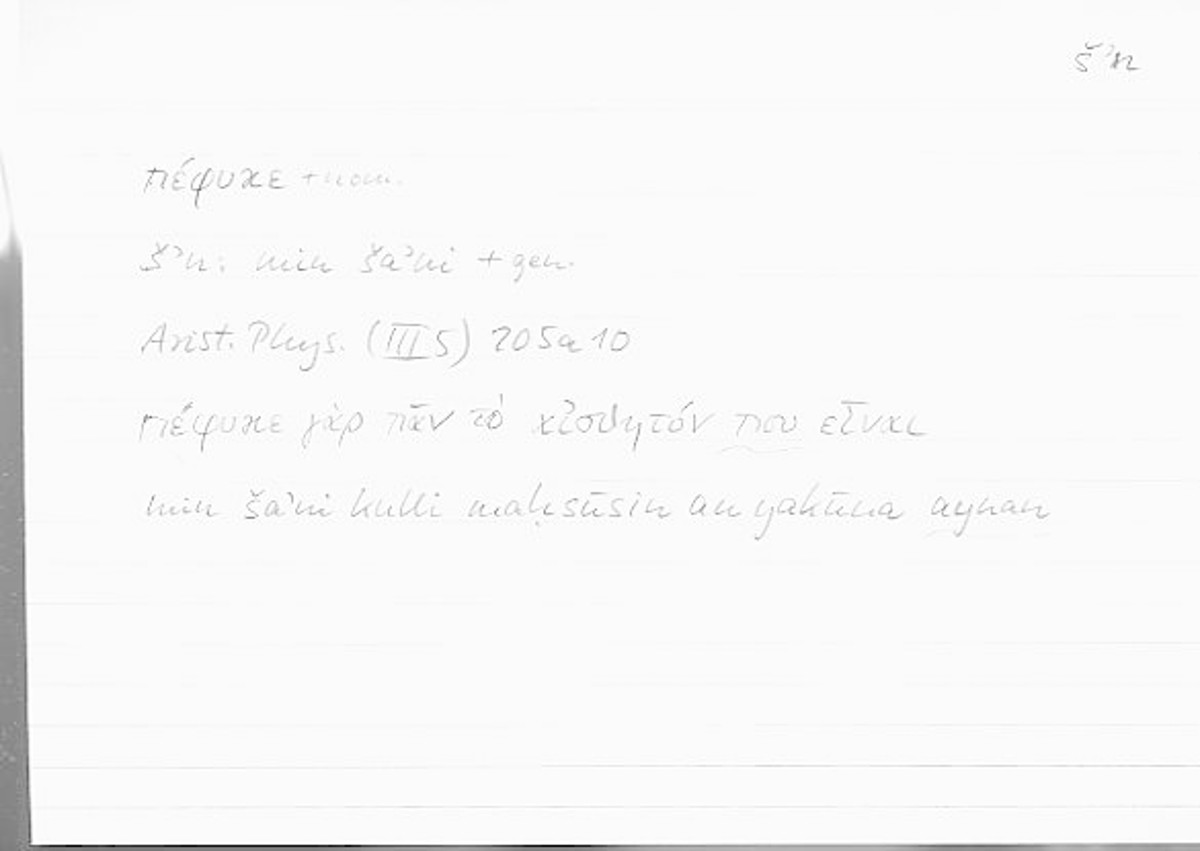 šʾn
πέφυκε + nom.
šʾn: min šaʾni + gen.
Arist. Phys. (III 5) 205a10
πέφυκε γὰρ πᾶν τὸ αἰσθητόν που εἶναι
min šaʾni kulli maḥsūsin an yakūna aynan